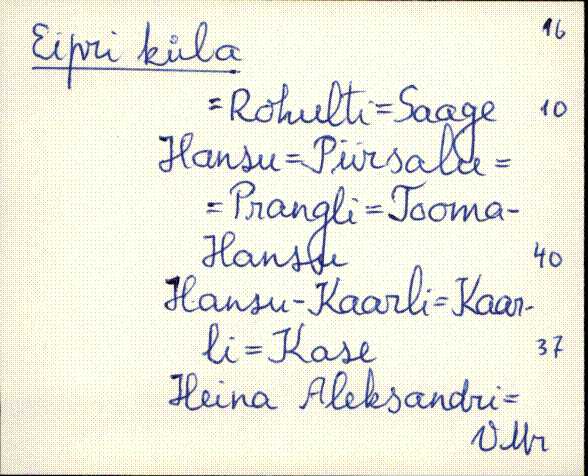 16
Eipri küla
=Rohulti=Saage 10
Hansu=Piirsalu=
=Prangli=Tooma-
Hansu 40
Hansu-Kaarli=Kaar-
li=Kase 37
Heina Aleksandri=